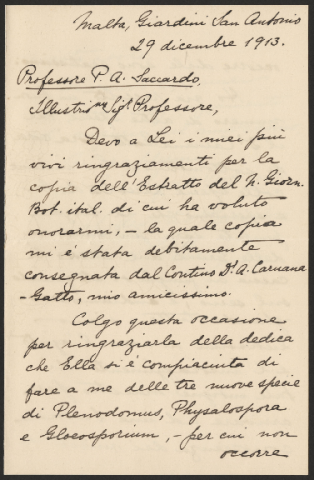 Malta, Giardini San Antonio
29 dicembre 1913.
Professore P. A. Saccardo,
Illustrio.mo Sigr Professore,
Devo a Lei i miei più
vivi ringraziamenti per la
copia dell'Estratto del N. Giorn.
Bot. ital. di cui ha voluto
onorarmi, - la quale copia
mi è stata debitamente
consegnata dal Contino Dr. A. Caruana
-Gatto, mio amicissimo.
Colgo questa occasione
per ringraziarla della dedica
che Ella si è compiaciuta di
fare a me delle tre nuove specie
di Plenodomus, Physalospora
e Gloeosporium, - per cui non
occorre